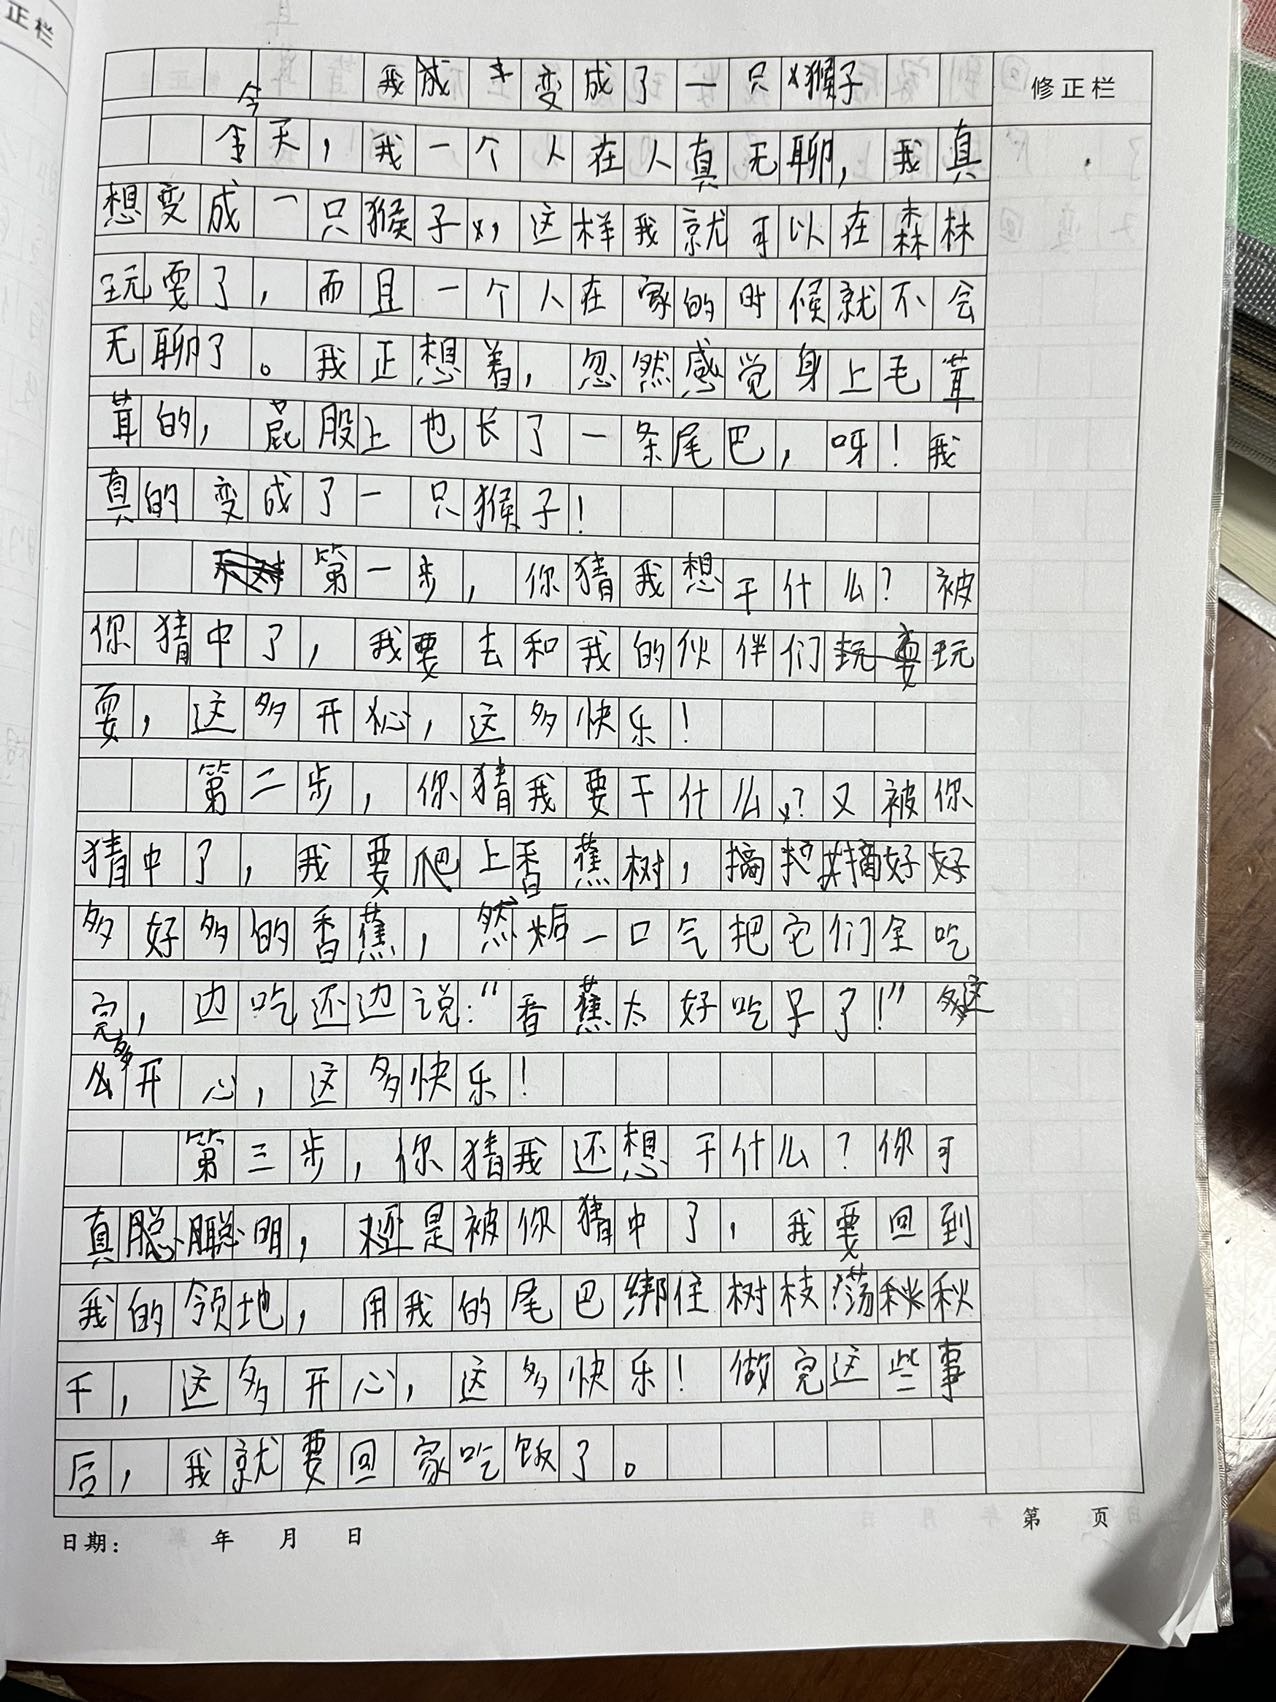 正栏
我变成了一只猴子
修正栏
今天，我一个人在人真无聊，我真
想变成一只猴子，这样我就可以在森林
玩耍了，而且一个人在家的时候就不会
无聊了。我正想着，忽然感觉身上毛茸
茸的，屁股上也长了一条尾巴，呀！我
真的变成了一只猴子！
第一步，你猜我想干什么？被
你猜中了，我要去和我的伙伴们玩
耍，这多开心，这多快乐！
第二步，你猜我要干什么？又被你
猜中了，我要爬上香蕉树，摘好好
多好多的香蕉，然后一口气把它们全吃
完，边吃还边说：“香蕉太好吃了！”这
么多开心，这多快乐！
第三步，你猜我还想干什么？你可
真聪明，还是被你猜中了，我要回到
我的领地，用我的尾巴绑住树枝荡秋
千，这多开心，这多快乐！做完这些事
后，我就要回家吃饭了。
第 页
日期： 年 月 日